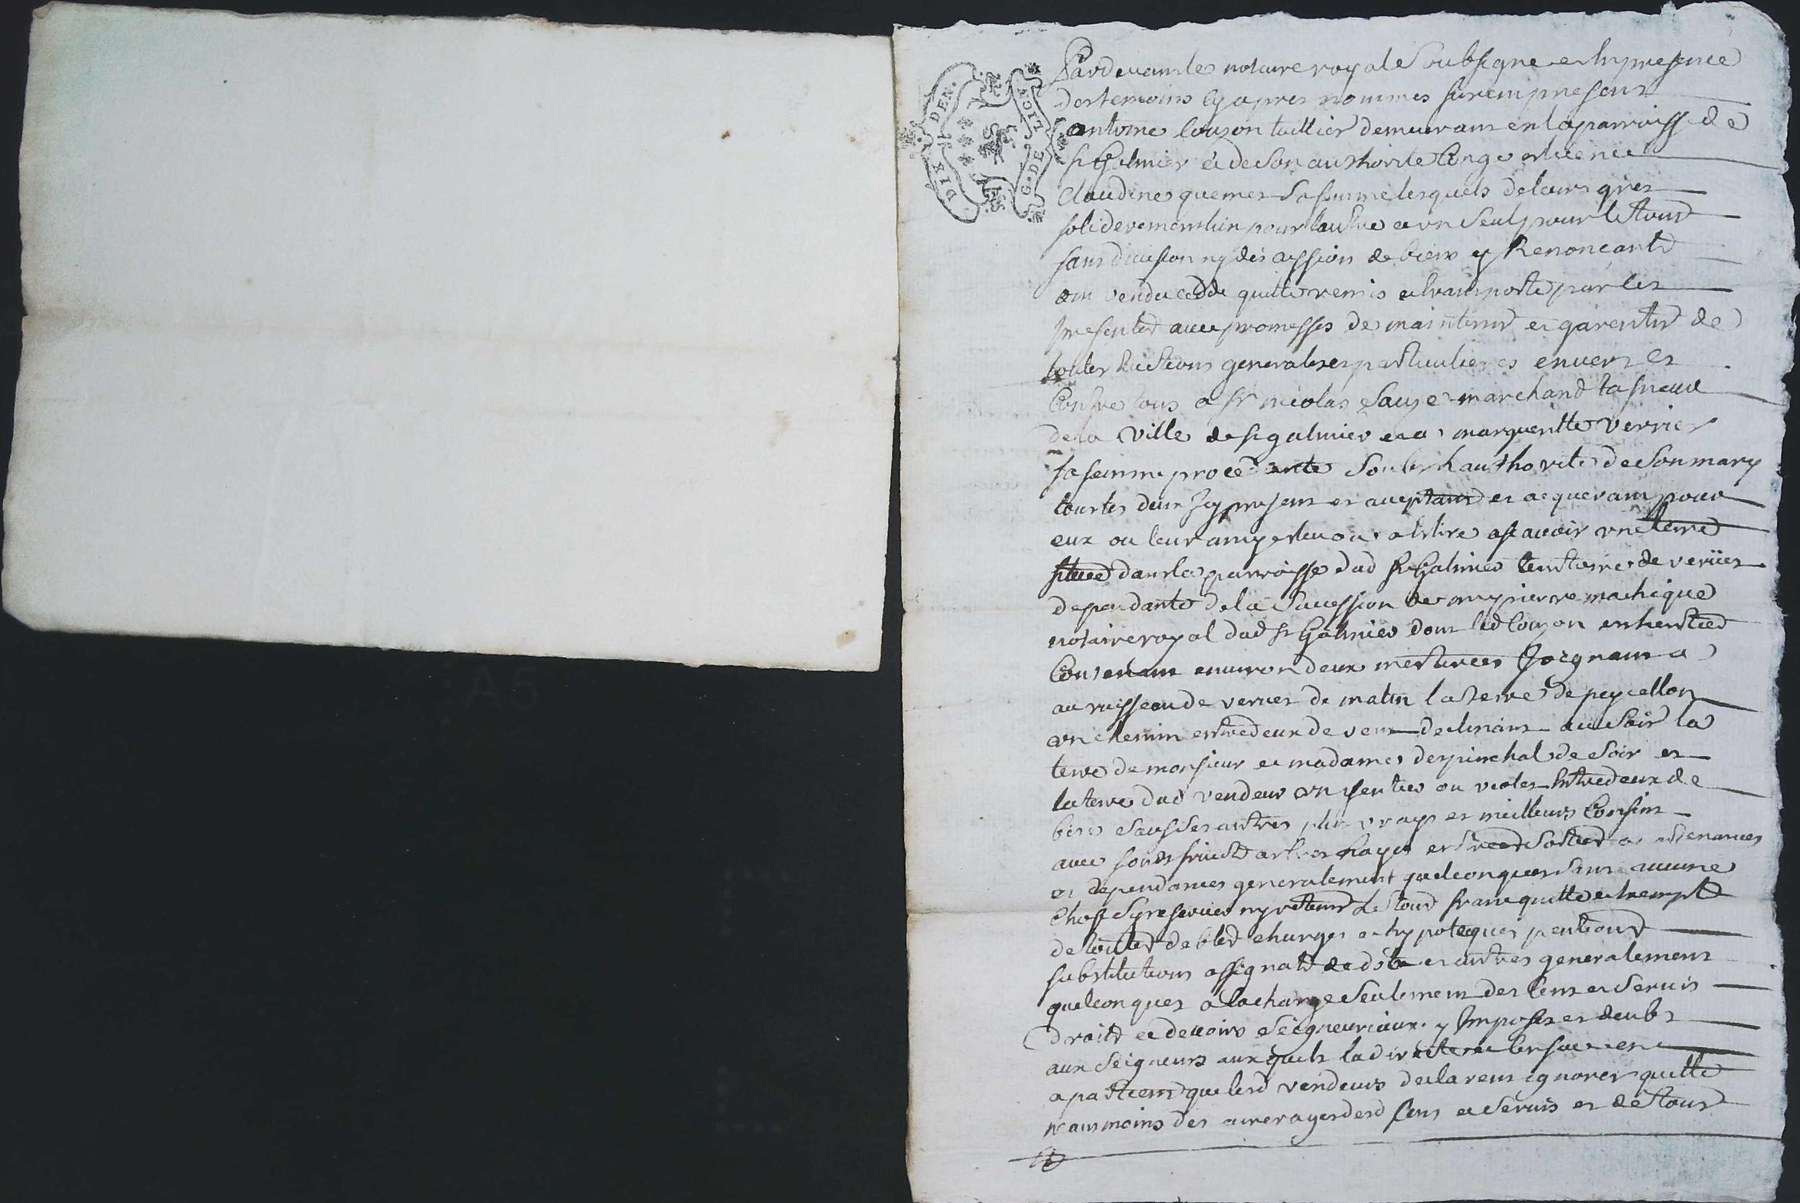 DIX DEN.
G. DE LION
Pardevant le notaire royal Soubsigne et en presence
des temoins cy apres nommes furent presens
antoine Couzon tuillier demeurant en la parroisse de
st Galmier et de son authorite Conge et licence
Claudine sa femme lesquels de leurs gres
solidairement l'un pour l'autre et un seul pour le tout
sans division ny discussion de biens y Renoncant
ont vendu cedde quitte remis et transporte par les
presentes avec promesses de maintenir et garentir de
toutes Evictions generales et particulieres envers et
Contre tous a sr nicolas marchand
de la ville de st galmier et a margueritte verrier
sa femme procedante Soubs l'authorite de son mary
tous les deux Icy presens et acceptans et acquerans pour
eux ou leur amy eleu ou a elire ascavoir une terre
situee dans la parroisse dud st Galmier territoire de
dependante de la Succession de me pierre machique
notaire royal dud st Galmier dont led Couzon en heritier
Contenant environ deux mesturees Joignant a
au ruisseau de de matin la terre de peycellon
un chemin entredeux de vent declinant au Soir la
terre de monsieur et madame despinchal de Soir et
la terre dud vendeur un sentier ou violet Entredeux de
bize Sauf ses autres plus vrays et meilleurs Confins
avec fonds fruits arbres hayes entrees Sorties
et dependances generalement quelconques sans aucune
chose Sy reserver ny retenir le tout franc quitte et exempt
de toutes debtes charges et hypoteques pentions
substitutions assignats de dote et autres generalement
quelconques a la charge Seulement des Cens et Servis
droits et devoirs Seigneuriaux y Imposes et deubs
aux Seigneurs auxquels la directe
apartient que lesd vendeurs declarent ignorer quitte
neanmoins des arrerages desd Cens et Servis et de tout